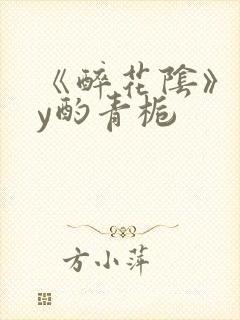 《醉花陰》
y酌青梔
方小萍